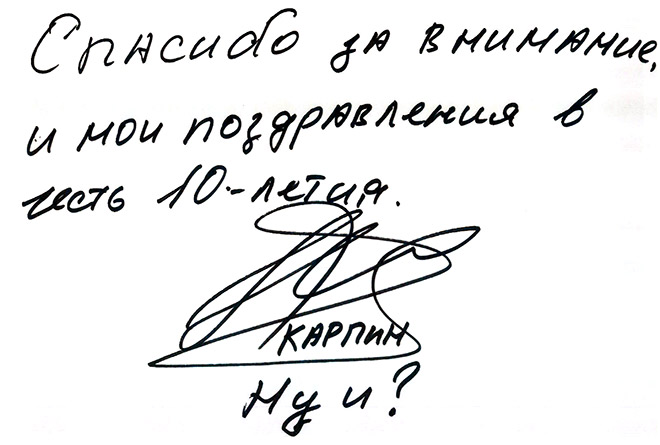 Спасибо за внимание,
и мои поздравления в
честь 10-летия.
КАРПИН
Ну и?